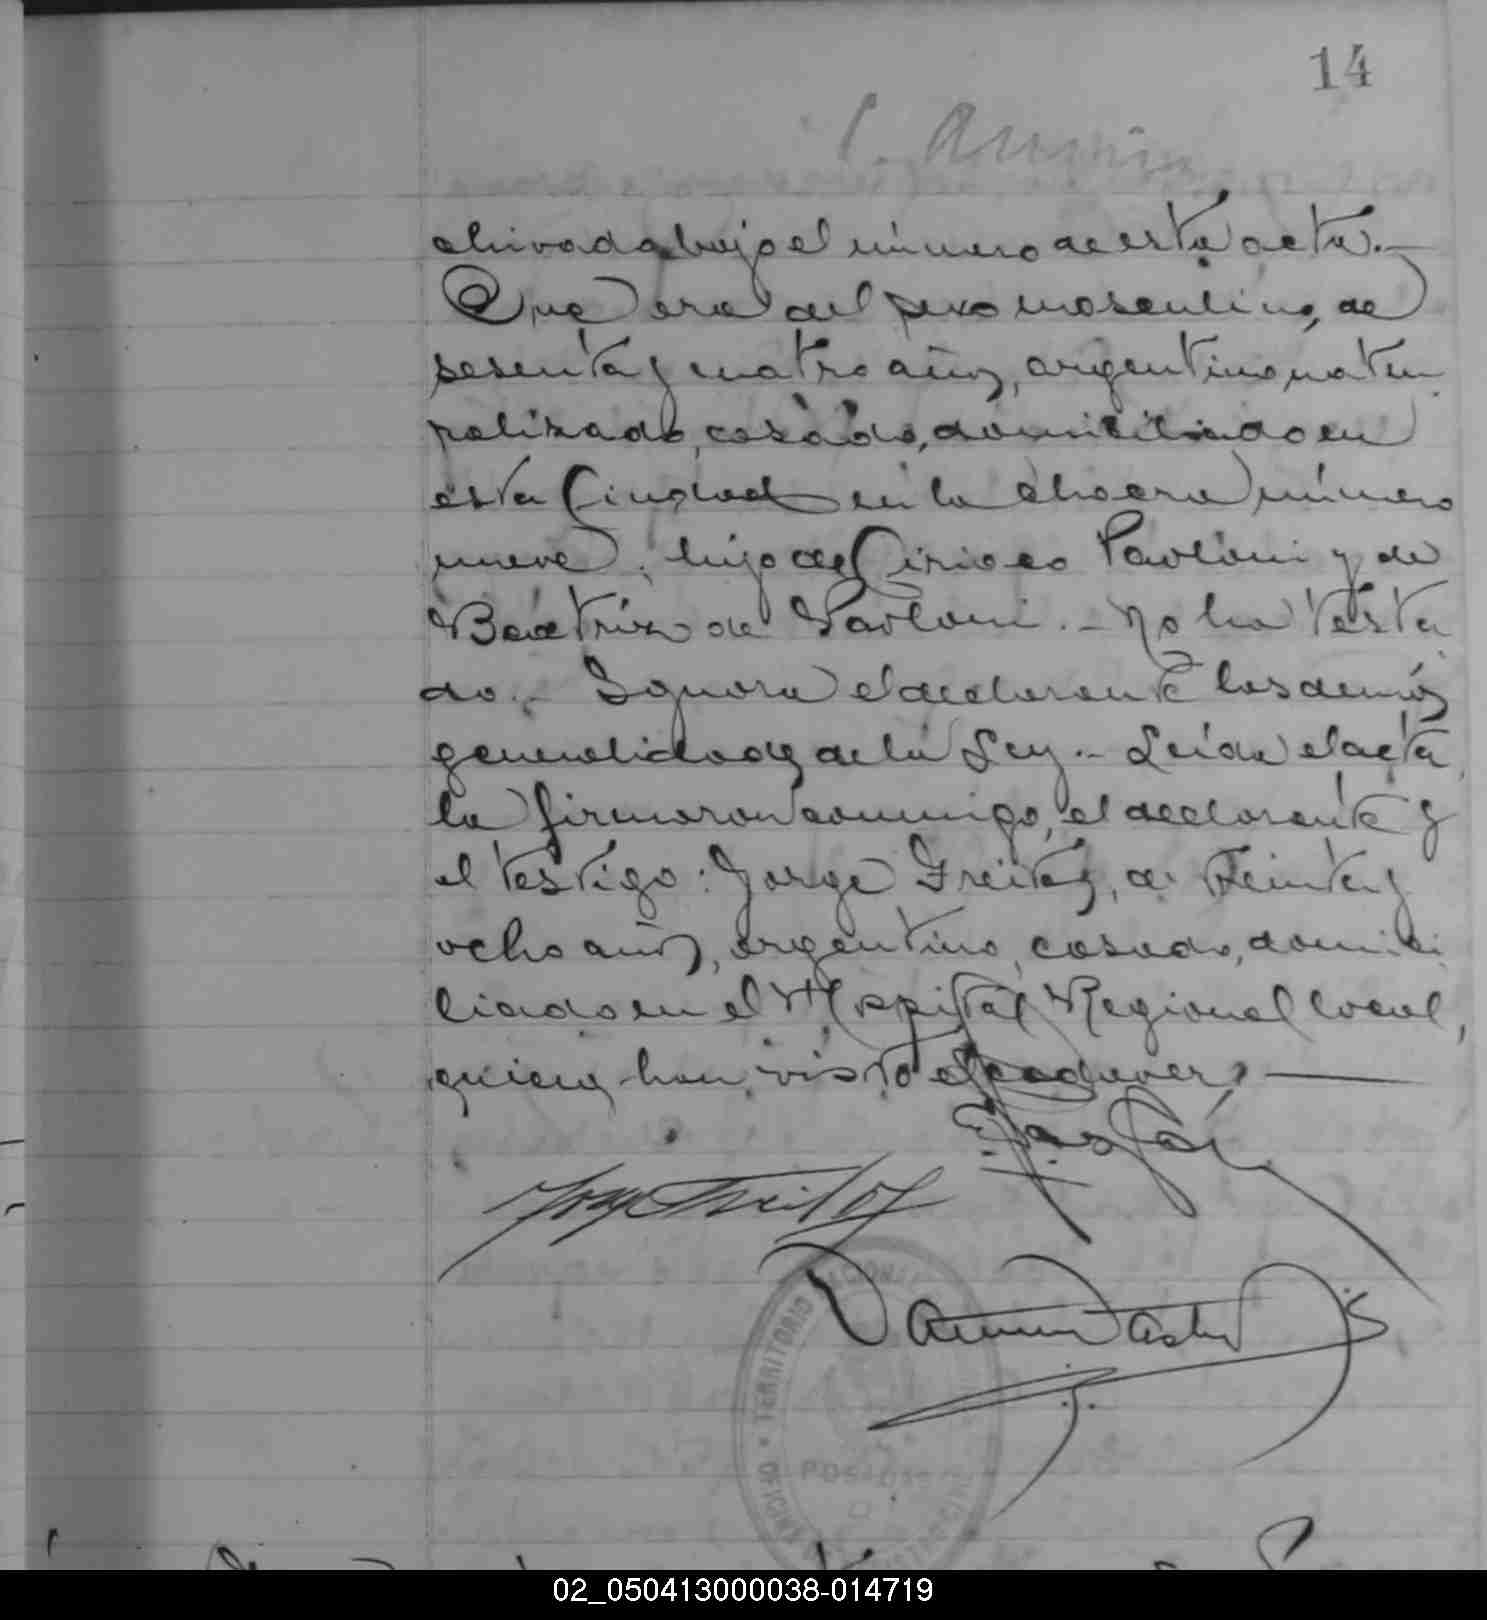 14
chivada bajo el número de esta acta.—
Que era del sexo masculino, de
sesenta y cuatro años, argentino natu
ralizado, casado, domiciliado en
esta Ciudad en la chacra número
nueve; hijo de Pavloni y de
Beatriz de Pavloni.- No ha testa
do.- Ignora el declarante las demás
generalidades de la Ley.- Leída el acta
la firmaron conmigo, el declarante y
el testigo: Jorge Freitas, de treinta y
ocho años, argentino, casado, domici
liado en el Hospital Regional local,
quienes han visto el cadaver.—
Jorge Freitas
TERRITORIO NACIONAL
POSADAS
02_050413000038-014719